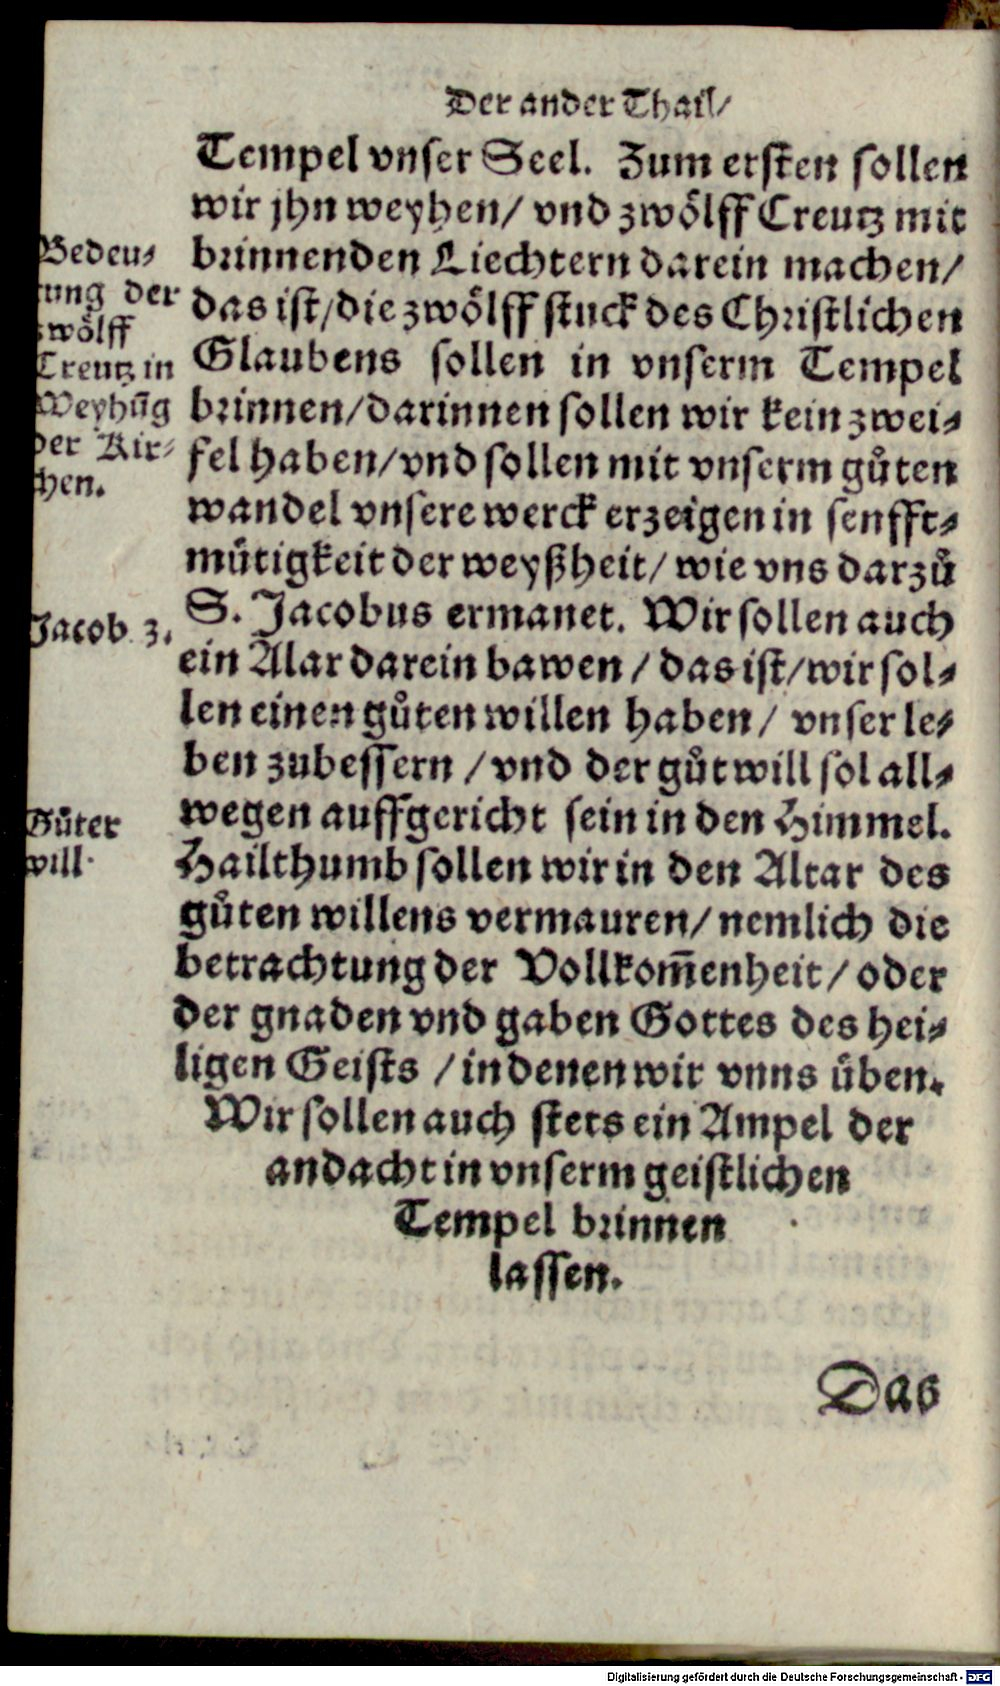 Der ander Thail/
Tempel vnser Seel. Zum ersten sollen
wir jhn weyhen/ vnd zwoͤlff Creutz mit
brinnenden Liechtern darein machen/
das ist/die zwoͤlff stuck des Christlichen
Glaubens sollen in vnserm Tempel
brinnen/darinnen sollen wir kein zwei⸗
fel haben/vnd sollen mit vnserm guͦten
wandel vnsere werck erzeigen in senfft⸗
muͤtigkeit der weyßheit/ wie vns darzuͦ
S. Jacobus ermanet. Wir sollen auch
ein Alar darein bawen / das ist/wir sol⸗
len einen guͦten willen haben/ vnser le⸗
ben zubessern /vnd der guͦt will sol all⸗
wegen auffgericht sein in den Himmel.
Hailthumb sollen wir in den Altar des
guͦten willens vermauren/ nemlich die
betrachtung der Vollkom̃enheit/ oder
der gnaden vnd gaben Gottes des hei⸗
ligen Geists /in denen wir vnns uͤben.
Wir sollen auch stets ein Ampel der
andacht in vnserm geistlichen
Tempel brinnen
lassen.
Das
Bedeu⸗
tung der
zwoͤlff
Creutz in
Weyhũg
der Kir⸗
chen.
Jacob 3.
Guͦter
will.
Digitalisierung gefördert durch die Deutsche Forschungsgemeinschaft - DFG